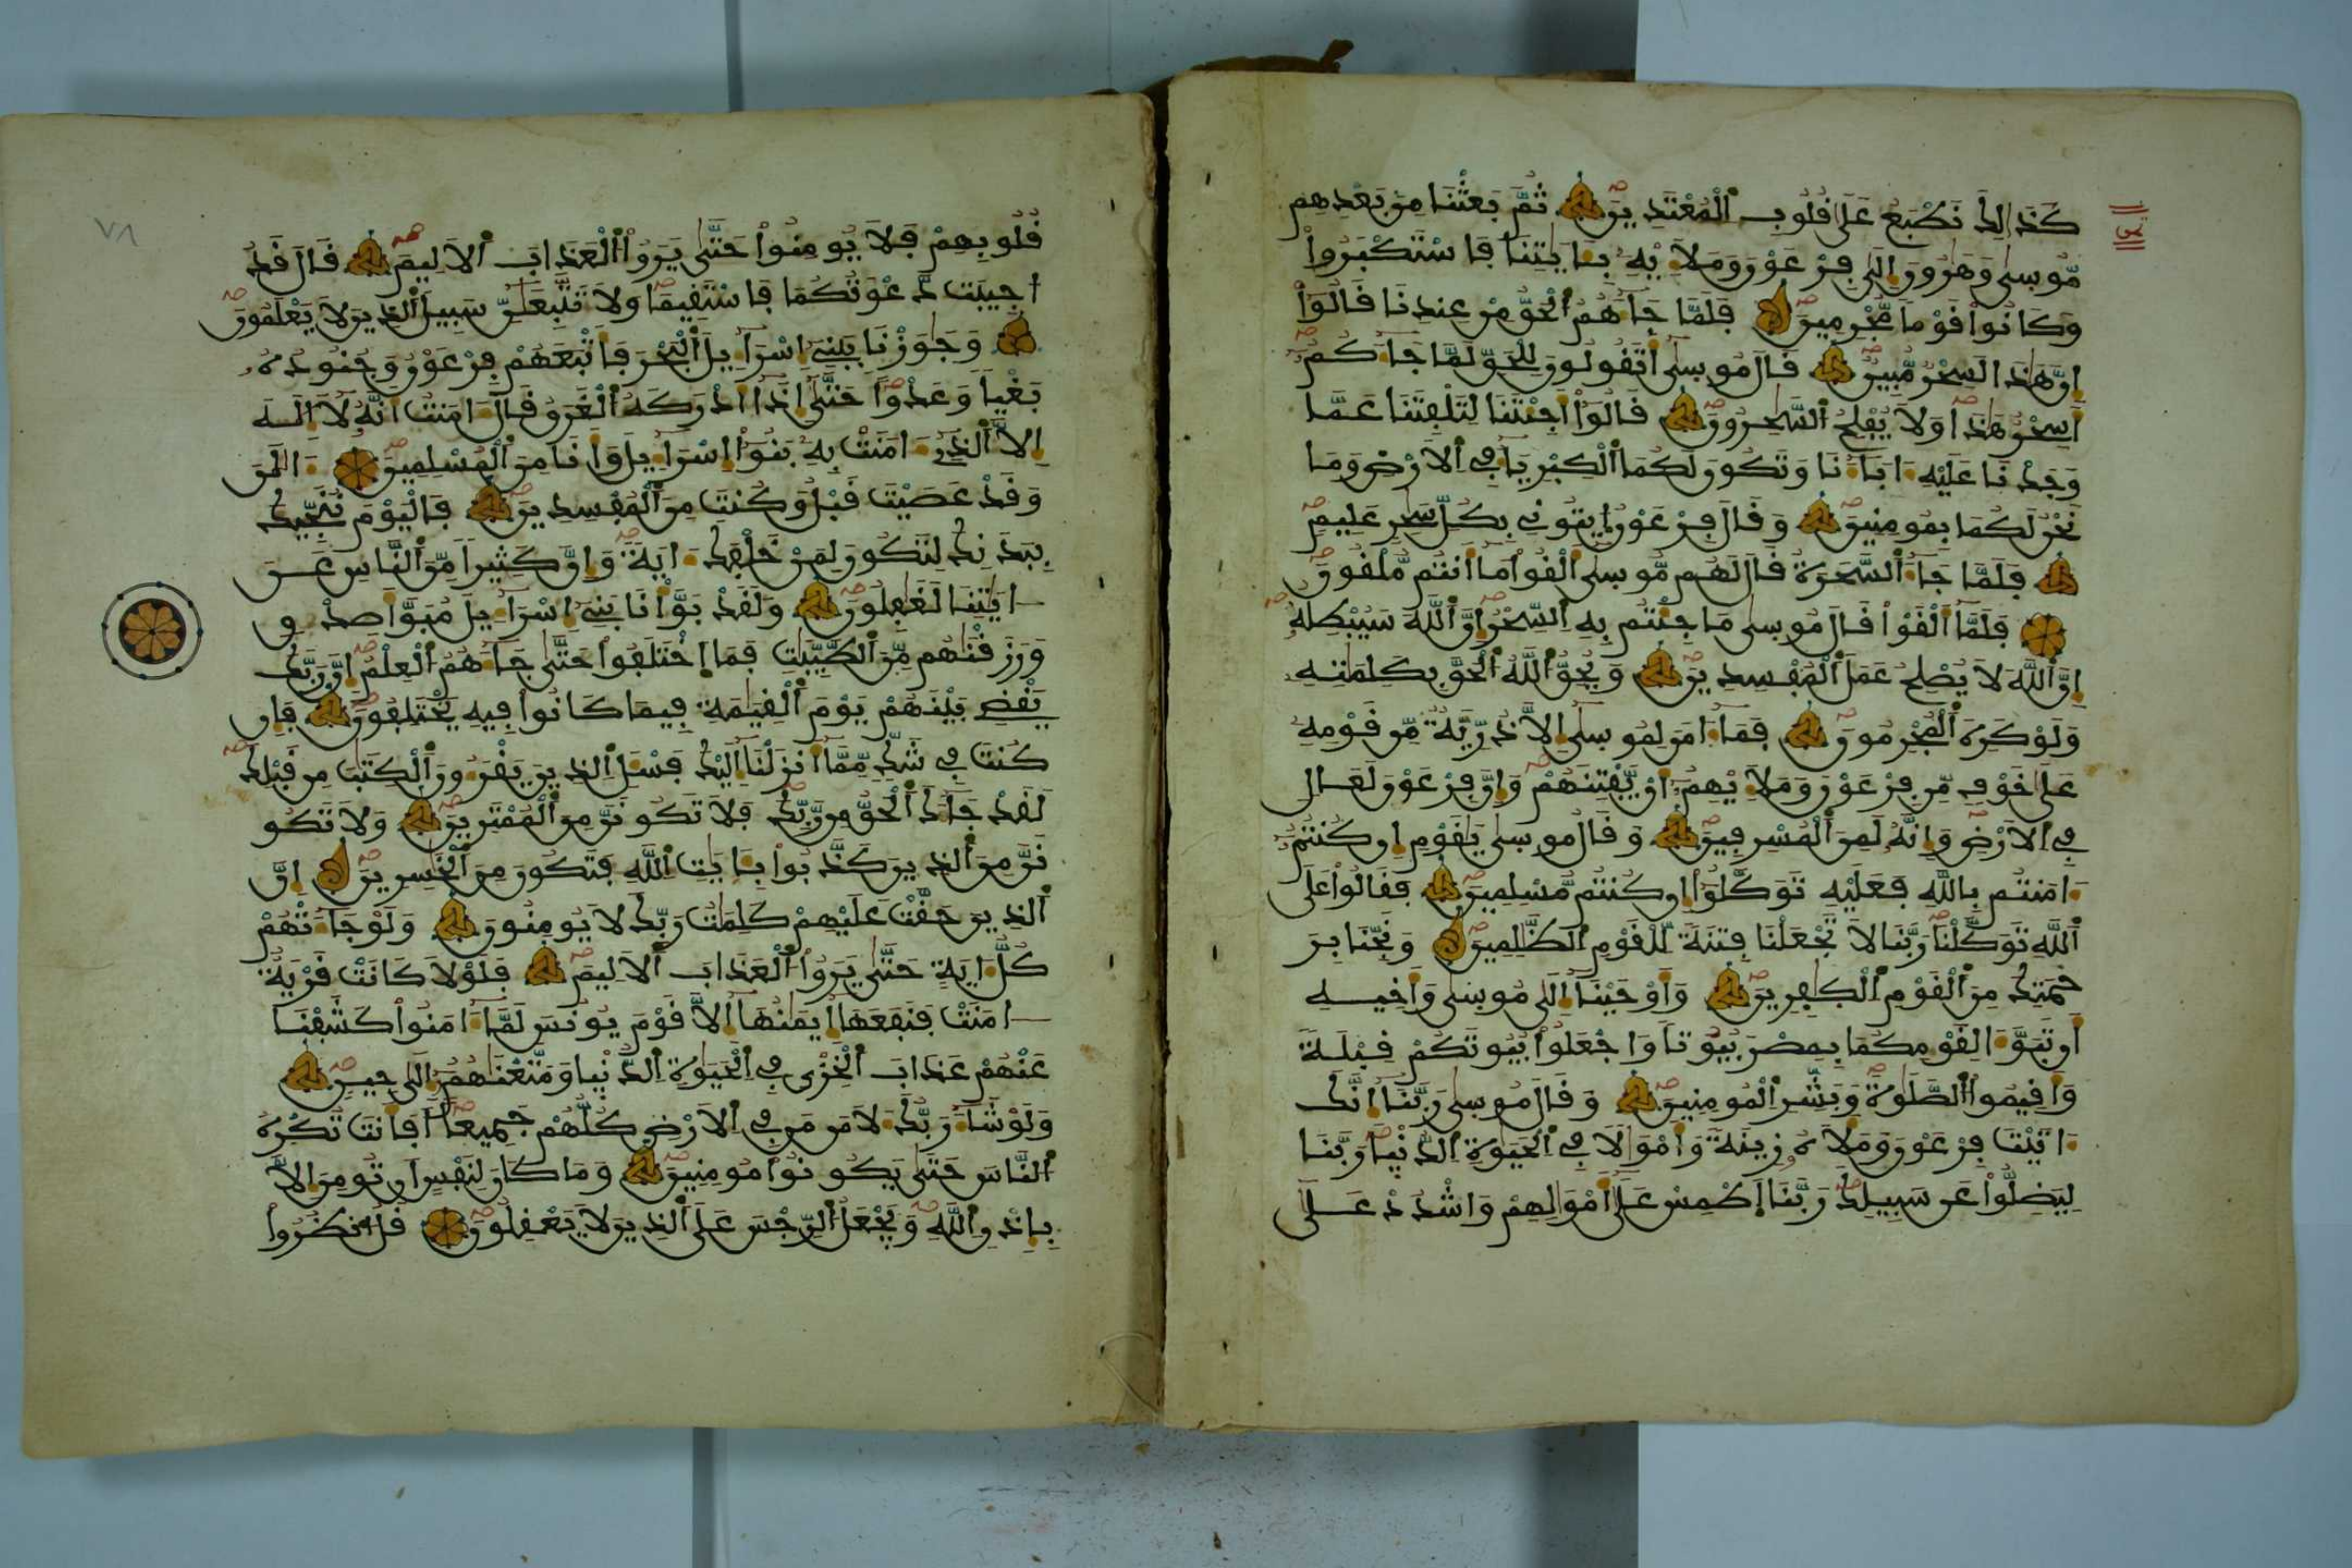 كَذَٰلِكَ نَطْبَعُ عَلَىٰ قُلُوبِ اِ۬لْمُعْتَدِينَ ثُمَّ بَعَثْنَا مِنۢ بَعْدِهِم
مُّوسىٰ وَهَٰرُونَ إِلَىٰ فِرْعَوْنَ وَمَلَإِيْهِۦ بِـَٔايَٰتِنَا فَاسْتَكْبَرُواْ
وَكَانُواْ قَوْماٗ مُّجْرِمِينَ فَلَمَّا جَآءَهُمُ اُ۬لْحَقُّ مِنْ عِندِنَا قَالُوٓاْ
إِنَّ هَٰذَا لَسِحْرٞ مُّبِينٞ قَالَ مُوسىٰٓ أَتَقُولُونَ لِلْحَقِّ لَمَّا جَآءَكُمُۥٓ
أَسِحْرٌ هَٰذَا وَلَا يُفْلِحُ اُ۬لسَّٰحِرُونَ قَالُوٓاْ أَجِئْتَنَا لِتَلْفِتَنَا عَمَّا
وَجَدْنَا عَلَيْهِ ءَابَآءَنَا وَتَكُونَ لَكُمَا اَ۬لْكِبْرِيَآءُ فِے اِ۬لَارْضِ وَمَا
نَحْنُ لَكُمَا بِمُومِنِينَ وَقَالَ فِرْعَوْنُ اُ۪يتُونِے بِكُلِّ سَٰحِرٍ عَلِيمٖ
فَلَمَّا جَآءَ اَ۬لسَّحَرَةُ قَالَ لَهُم مُّوسىٰٓ أَلْقُواْ مَآ أَنتُم مُّلْقُونَ
فَلَمَّآ أَلْقَوْاْ قَالَ مُوسىٰ مَا جِئْتُم بِهِ اِ۬لسِّحْرُ إِنَّ اَ۬للَّهَ سَيُبْطِلُهُۥٓ
إِنَّ اَ۬للَّهَ لَا يُصْلِحُ عَمَلَ اَ۬لْمُفْسِدِينَ وَيُحِقُّ اُ۬للَّهُ اُ۬لْحَقَّ بِكَلِمَٰتِهِۦ
وَلَوْ كَرِهَ اَ۬لْمُجْرِمُونَ فَمَآ ءَامَنَ لِمُوسىٰٓ إِلَّا ذُرِّيَّةٞ مِّن قَوْمِهِۦ
عَلَىٰ خَوْفٖ مِّن فِرْعَوْنَ وَمَلَإِيْهِمُۥٓ أَنْ يَّفْتِنَهُمْ وَإِنَّ فِرْعَوْنَ لَعَالٖ
فِے اِ۬لَارْضِ وَإِنَّهُۥ لَمِنَ اَ۬لْمُسْرِفِينَ وَقَالَ مُوسىٰ يَٰقَوْمِ إِن كُنتُمُۥٓ
ءَامَنتُم بِاللَّهِ فَعَلَيْهِ تَوَكَّلُوٓاْ إِن كُنتُم مُّسْلِمِينَ فَقَالُواْ عَلَى
اَ۬للَّهِ تَوَكَّلْنَا رَبَّنَا لَا تَجْعَلْنَا فِتْنَةٗ لِّلْقَوْمِ اِ۬لظَّٰلِمِينَ وَنَجِّنَا بِرَ
حْمَتِكَ مِنَ اَ۬لْقَوْمِ اِ۬لْكٰ۪فِرِينَ وَأَوْحَيْنَآ إِلَىٰ مُوسىٰ وَأَخِيهِ
أَن تَبَوَّءَا لِقَوْمِكُمَا بِمِصْرَ بُيُوتاٗ وَاجْعَلُواْ بُيُوتَكُمْ قِبْلَةٗ
وَأَقِيمُواْ اُ۬لصَّلَوٰةَ وَبَشِّرِ اِ۬لْمُومِنِينَ وَقَالَ مُوسىٰ رَبَّنَآ إِنَّكَ
ءَاتَيْتَ فِرْعَوْنَ وَمَلَأَهُۥ زِينَةٗ وَأَمْوَٰلاٗ فِے اِ۬لْحَيَوٰةِ اِ۬لدُّنْيا رَبَّنَا
لِيَضِلُّواْ عَن سَبِيلِكَ رَبَّنَا اَ۪طْمِسْ عَلَىٰٓ أَمْوَٰلِهِمْ وَاشْدُدْ عَلَىٰ
٧٨
قُلُوبِهِمْ فَلَا يُومِنُواْ حَتَّىٰ يَرَوُاْ اُ۬لْعَذَابَ اَ۬لَالِيمَ قَالَ قَدُ
ا۟جِيبَت دَّعْوَتُكُمَا فَاسْتَقِيمَا وَلَا تَتَّبِعَٰنِّ سَبِيلَ اَ۬لذِينَ لَا يَعْلَمُونَ
وَجَٰوَزْنَا بِبَنِےٓ إِسْرَآءِيلَ اَ۬لْبَحْرَ فَأَتْبَعَهُمْ فِرْعَوْنُ وَجُنُودُهُۥ
بَغْياٗ وَعَدْواً حَتَّىٰٓ إِذَآ أَدْرَكَهُ اُ۬لْغَرَقُ قَالَ ءَامَنتُ أَنَّهُۥ لَآ إِلَٰهَ
إِلَّا اَ۬لذِےٓ ءَامَنَتْ بِهِۦ بَنُوٓاْ إِسْرَآءِيلَ وَأَنَا مِنَ اَ۬لْمُسْلِمِينَ ءَآلَٰنَ
وَقَدْ عَصَيْتَ قَبْلُ وَكُنتَ مِنَ اَ۬لْمُفْسِدِينَ فَالْيَوْمَ نُنَجِّيكَ
بِبَدَنِكَ لِتَكُونَ لِمَنْ خَلْفَكَ ءَايَةٗ وَإِنَّ كَثِيراٗ مِّنَ اَ۬لنَّاسِ عَنَ
ايَٰتِنَا لَغَٰفِلُونَ وَلَقَدْ بَوَّأْنَا بَنِےٓ إِسْرَآءِيلَ مُبَوَّأَ صِدْقٖ
وَرَزَقْنَٰهُم مِّنَ اَ۬لطَّيِّبَٰتِ فَمَا اَ۪خْتَلَفُواْ حَتَّىٰ جَآءَهُمُ اُ۬لْعِلْمُ إِنَّ رَبَّكَ
يَقْضِے بَيْنَهُمْ يَوْمَ اَ۬لْقِيَٰمَةِ فِيمَا كَانُواْ فِيهِ يَخْتَلِفُونَ فَإِن
كُنتَ فِے شَكّٖ مِّمَّآ أَنزَلْنَآ إِلَيْكَ فَسْـَٔلِ اِ۬لذِينَ يَقْرَءُونَ اَ۬لْكِتَٰبَ مِن قَبْلِكَ
لَقَدْ جَآءَكَ اَ۬لْحَقُّ مِن رَّبِّكَ فَلَا تَكُونَنَّ مِنَ اَ۬لْمُمْتَرِينَ وَلَا تَكُو
نَنَّ مِنَ اَ۬لذِينَ كَذَّبُواْ بِـَٔايَٰتِ اِ۬للَّهِ فَتَكُونَ مِنَ اَ۬لْخَٰسِرِينَ إِنَّ
اَ۬لذِينَ حَقَّتْ عَلَيْهِمْ كَلِمَٰتُ رَبِّكَ لَا يُومِنُونَ وَلَوْ جَآءَتْهُمْ
كُلُّ ءَايَةٍ حَتَّىٰ يَرَوُاْ اُ۬لْعَذَابَ اَ۬لَالِيمَ فَلَوْلَا كَانَتْ قَرْيَةٌ
امَنَتْ فَنَفَعَهَآ إِيمَٰنُهَآ إِلَّا قَوْمَ يُونُسَ لَمَّآ ءَامَنُواْ كَشَفْنَا
عَنْهُمْ عَذَابَ اَ۬لْخِزْيِ فِے اِ۬لْحَيَوٰةِ اِ۬لدُّنْيا وَمَتَّعْنَٰهُمُۥٓ إِلَىٰ حِينٖ
وَلَوْ شَآءَ رَبُّكَ لَأٓمَنَ مَن فِے اِ۬لَارْضِ كُلُّهُمْ جَمِيعاً أَفَأَنتَ تُكْرِهُ
اُ۬لنَّاسَ حَتَّىٰ يَكُونُواْ مُومِنِينَ وَمَا كَانَ لِنَفْسٍ أَن تُومِنَ إِلَّا
بِإِذْنِ اِ۬للَّهِ وَيَجْعَلُ اُ۬لرِّجْسَ عَلَى اَ۬لذِينَ لَا يَعْقِلُونَ قُلُ اُ۟نظُرُواْ